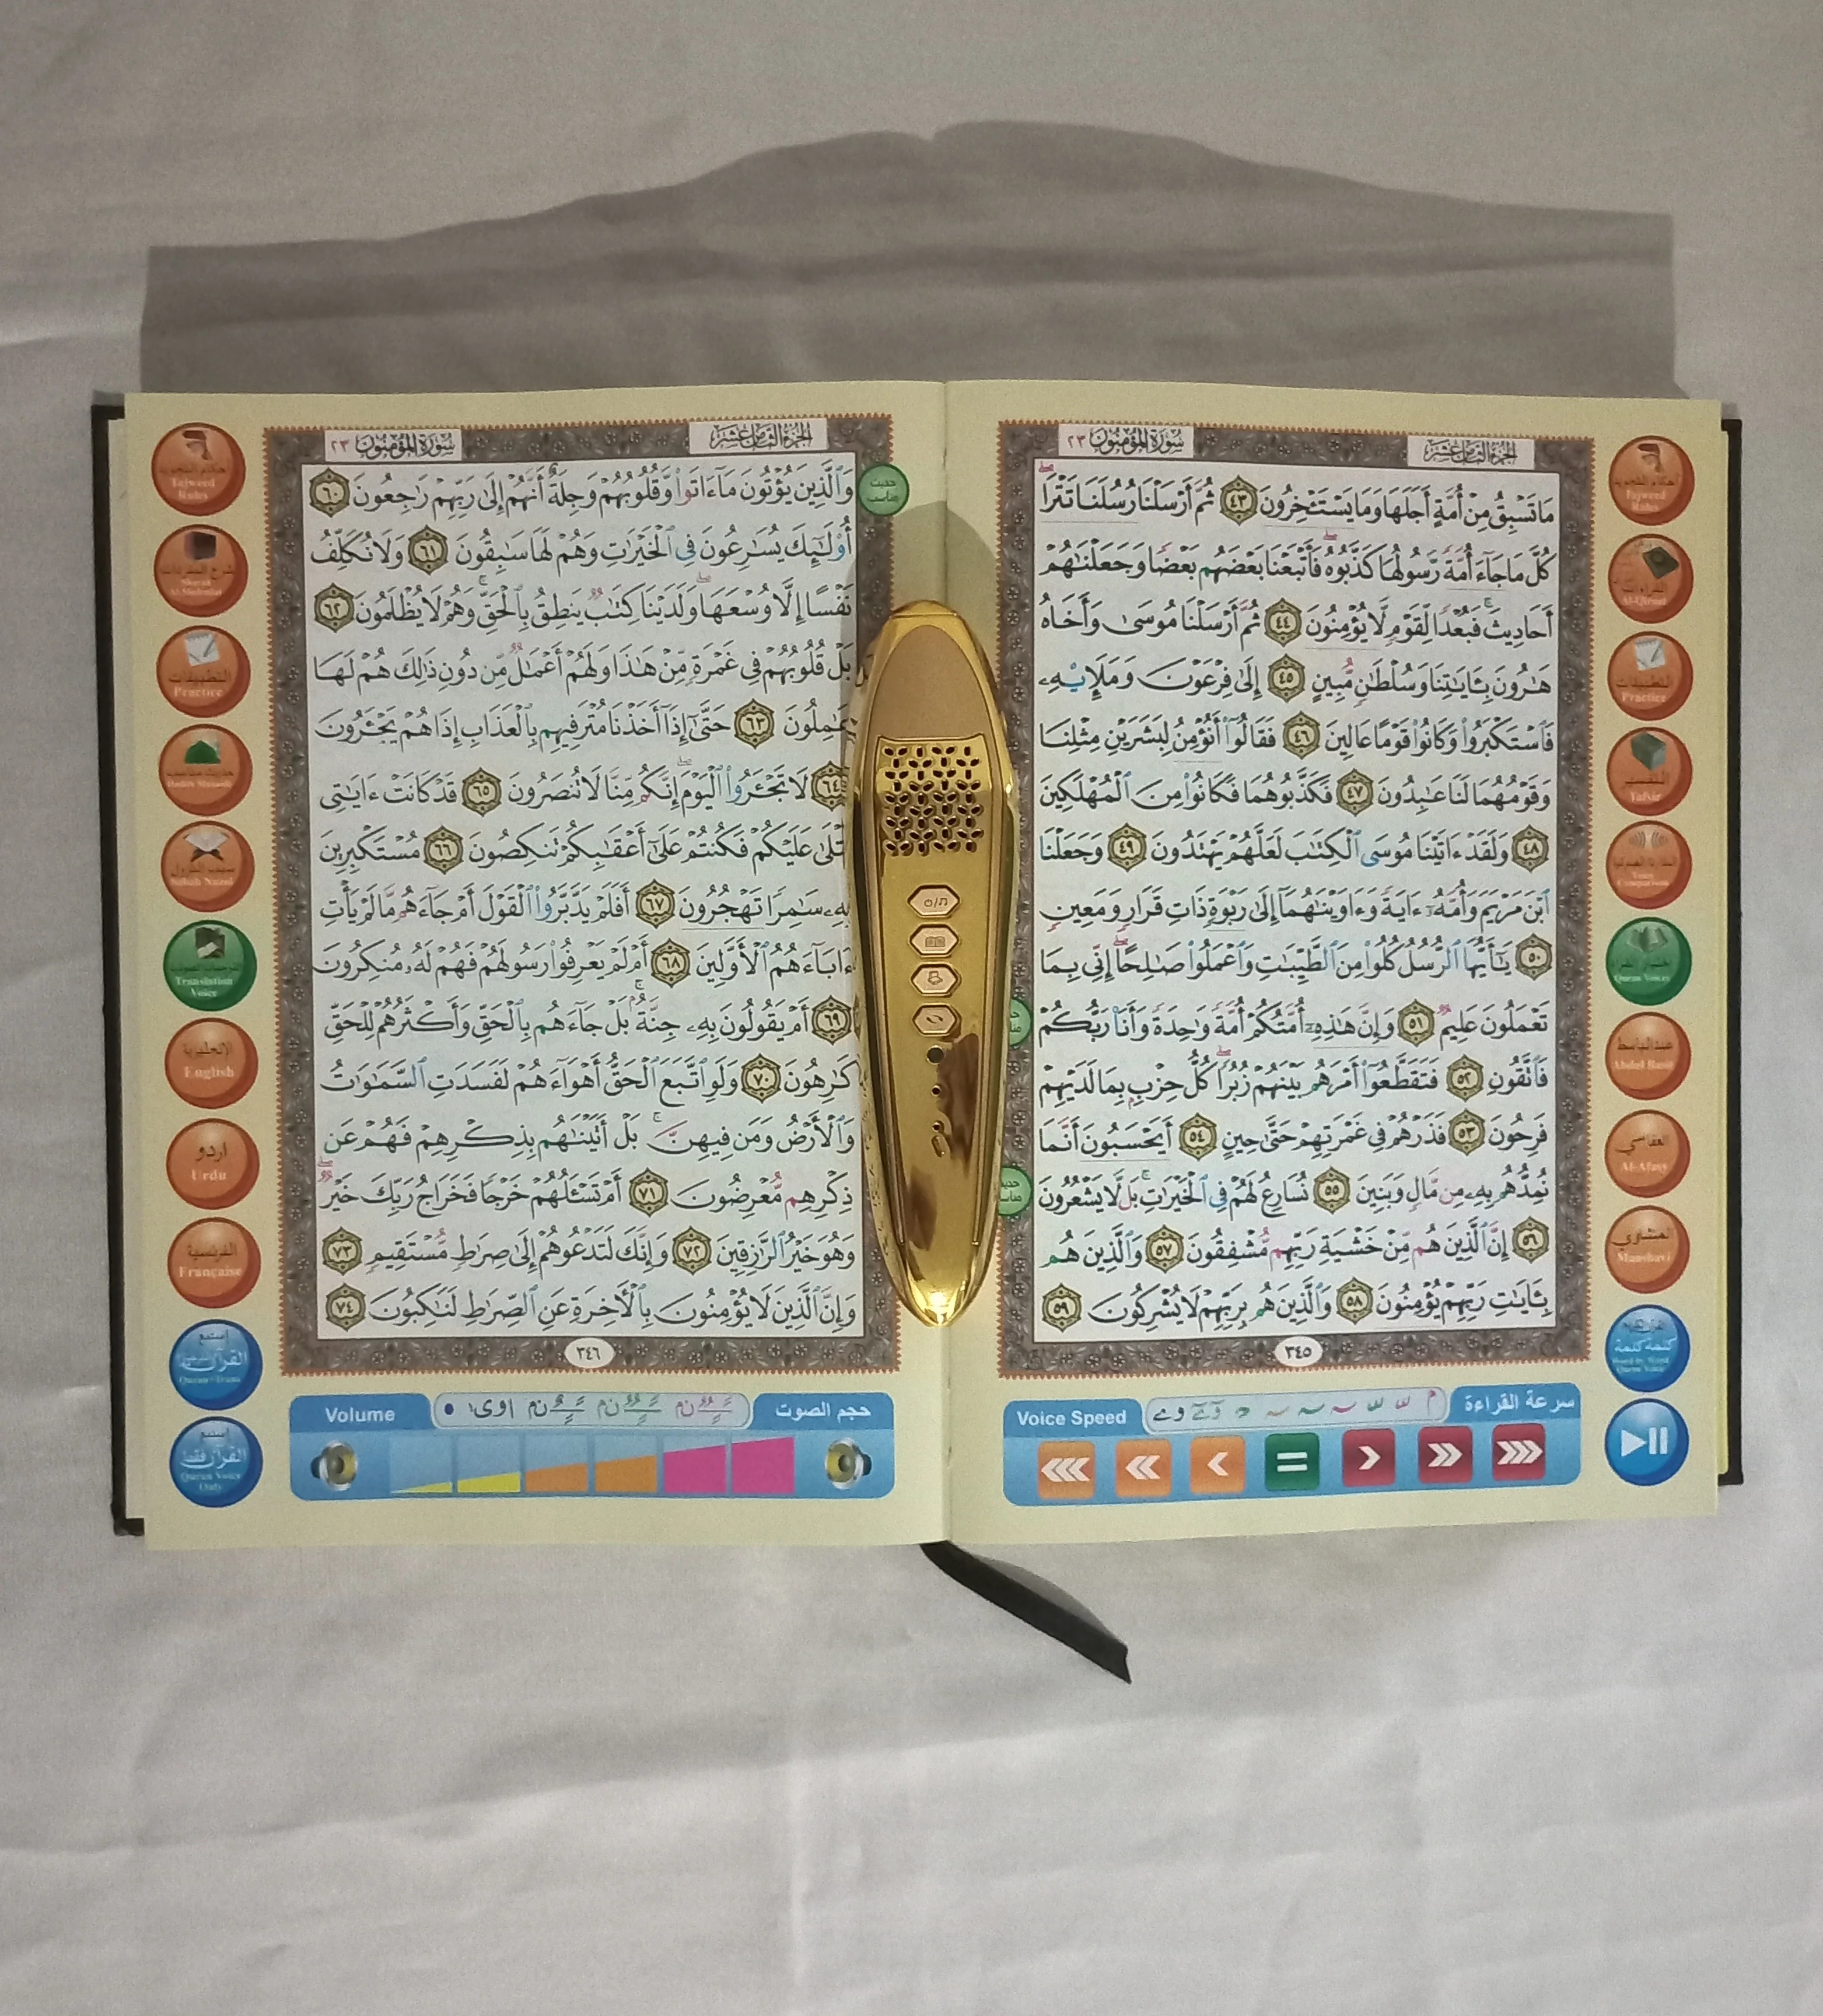 الجزء الثامن عشر
سورة المؤمنون ٢٣
مَا تَسْبِقُ مِنْ أُمَّةٍ أَجَلَهَا وَمَا يَسْتَـْٔخِرُونَ ٤٣ ثُمَّ أَرْسَلْنَا رُسُلَنَا تَتْرَا
كُلَّ مَا جَآءَ أُمَّةً رَّسُولُهَا كَذَّبُوهُ فَأَتْبَعْنَا بَعْضَهُم بَعْضًا وَجَعَلْنَـٰهُمْ
أَحَادِيثَ فَبُعْدًا لِّقَوْمٍ لَّا يُؤْمِنُونَ ٤٤ ثُمَّ أَرْسَلْنَا مُوسَىٰ وَأَخَاهُ
هَـٰرُونَ بِـَٔايَـٰتِنَا وَسُلْطَـٰنٍ مُّبِينٍ ٤٥ إِلَىٰ فِرْعَوْنَ وَمَلَإِي۟هِۦ
فَٱسْتَكْبَرُوا۟ وَكَانُوا۟ قَوْمًا عَالِينَ ٤٦ فَقَالُوٓا۟ أَنُؤْمِنُ لِبَشَرَيْنِ مِثْلِنَا
وَقَوْمُهُمَا لَنَا عَـٰبِدُونَ ٤٧ فَكَذَّبُوهُمَا فَكَانُوا۟ مِنَ ٱلْمُهْلَكِينَ
٤٨ وَلَقَدْ ءَاتَيْنَا مُوسَى ٱلْكِتَـٰبَ لَعَلَّهُمْ يَهْتَدُونَ ٤٩ وَجَعَلْنَا
ٱبْنَ مَرْيَمَ وَأُمَّهُۥٓ ءَايَةً وَءَاوَيْنَـٰهُمَآ إِلَىٰ رَبْوَةٍ ذَاتِ قَرَارٍ وَمَعِينٍ
٥٠ يَـٰٓأَيُّهَا ٱلرُّسُلُ كُلُوا۟ مِنَ ٱلطَّيِّبَـٰتِ وَٱعْمَلُوا۟ صَـٰلِحًا إِنِّى بِمَا
تَعْمَلُونَ عَلِيمٌ ٥١ وَإِنَّ هَـٰذِهِۦٓ أُمَّتُكُمْ أُمَّةً وَٰحِدَةً وَأَنَا۠ رَبُّكُمْ
فَٱتَّقُونِ ٥٢ فَتَقَطَّعُوٓا۟ أَمْرَهُم بَيْنَهُمْ زُبُرًا كُلُّ حِزْبٍۭ بِمَا لَدَيْهِمْ
فَرِحُونَ ٥٣ فَذَرْهُمْ فِى غَمْرَتِهِمْ حَتَّىٰ حِينٍ ٥٤ أَيَحْسَبُونَ أَنَّمَا
نُمِدُّهُم بِهِۦ مِن مَّالٍ وَبَنِينَ ٥٥ نُسَارِعُ لَهُمْ فِى ٱلْخَيْرَٰتِ بَل لَّا يَشْعُرُونَ
٥٦ إِنَّ ٱلَّذِينَ هُم مِّنْ خَشْيَةِ رَبِّهِم مُّشْفِقُونَ ٥٧ وَٱلَّذِينَ هُم
بِـَٔايَـٰتِ رَبِّهِمْ يُؤْمِنُونَ ٥٨ وَٱلَّذِينَ هُم بِرَبِّهِمْ لَا يُشْرِكُونَ ٥٩
٣٤٥
سرعة القراءة
Voice Speed
أحكام التجويد
Tajweed Rules
Al-Qiraat
التطبيقات
Practice
التفسير
Tafsir
المقارنة الصوتية
Voice Comparison
Quran Voices
عبدالباسط
Abdul Basit
العفاسي
Al-Afasy
المنشاوي
Manshavi
كلمة كلمة
Word by Word
Quran Voice
الجزء الثامن عشر
سورة المؤمنون ٢٣
وَٱلَّذِينَ يُؤْتُونَ مَآ ءَاتَوا۟ وَّقُلُوبُهُمْ وَجِلَةٌ أَنَّهُمْ إِلَىٰ رَبِّهِمْ رَٰجِعُونَ ٦٠
أُو۟لَـٰٓئِكَ يُسَـٰرِعُونَ فِى ٱلْخَيْرَٰتِ وَهُمْ لَهَا سَـٰبِقُونَ ٦١ وَلَا نُكَلِّفُ
نَفْسًا إِلَّا وُسْعَهَا وَلَدَيْنَا كِتَـٰبٌ يَنطِقُ بِٱلْحَقِّ وَهُمْ لَا يُظْلَمُونَ ٦٢
بَلْ قُلُوبُهُمْ فِى غَمْرَةٍ مِّنْ هَـٰذَا وَلَهُمْ أَعْمَـٰلٌ مِّن دُونِ ذَٰلِكَ هُمْ لَهَا
عَـٰمِلُونَ ٦٣ حَتَّىٰٓ إِذَآ أَخَذْنَا مُتْرَفِيهِم بِٱلْعَذَابِ إِذَا هُمْ يَجْـَٔرُونَ
٦٤ لَا تَجْـَٔرُوا۟ ٱلْيَوْمَ إِنَّكُم مِّنَّا لَا تُنصَرُونَ ٦٥ قَدْ كَانَتْ ءَايَـٰتِى
تُتْلَىٰ عَلَيْكُمْ فَكُنتُمْ عَلَىٰٓ أَعْقَـٰبِكُمْ تَنكِصُونَ ٦٦ مُسْتَكْبِرِينَ
بِهِۦ سَـٰمِرًا تَهْجُرُونَ ٦٧ أَفَلَمْ يَدَّبَّرُوا۟ ٱلْقَوْلَ أَمْ جَآءَهُم مَّا لَمْ يَأْتِ
ءَابَآءَهُمُ ٱلْأَوَّلِينَ ٦٨ أَمْ لَمْ يَعْرِفُوا۟ رَسُولَهُمْ فَهُمْ لَهُۥ مُنكِرُونَ
٦٩ أَمْ يَقُولُونَ بِهِۦ جِنَّةٌۢ بَلْ جَآءَهُم بِٱلْحَقِّ وَأَكْثَرُهُمْ لِلْحَقِّ
كَـٰرِهُونَ ٧٠ وَلَوِ ٱتَّبَعَ ٱلْحَقُّ أَهْوَآءَهُمْ لَفَسَدَتِ ٱلسَّمَـٰوَٰتُ
وَٱلْأَرْضُ وَمَن فِيهِنَّ بَلْ أَتَيْنَـٰهُم بِذِكْرِهِمْ فَهُمْ عَن
ذِكْرِهِم مُّعْرِضُونَ ٧١ أَمْ تَسْـَٔلُهُمْ خَرْجًا فَخَرَاجُ رَبِّكَ خَيْرٌ
وَهُوَ خَيْرُ ٱلرَّٰزِقِينَ ٧٢ وَإِنَّكَ لَتَدْعُوهُمْ إِلَىٰ صِرَٰطٍ مُّسْتَقِيمٍ ٧٣
وَإِنَّ ٱلَّذِينَ لَا يُؤْمِنُونَ بِٱلْـَٔاخِرَةِ عَنِ ٱلصِّرَٰطِ لَنَـٰكِبُونَ ٧٤
٣٤٦
حجم الصوت
Volume
حديث مناسب
أحكام التجويد
Tajweed Rules
التطبيقات
Practice
سبب النزول
Sabab Nuzul
Translation Voice
الإنجليزية
English
اردو
Urdu
الفرنسية
Française
إستمع
القرآن
إستمع
القرآن فقط
Quran Voice Only